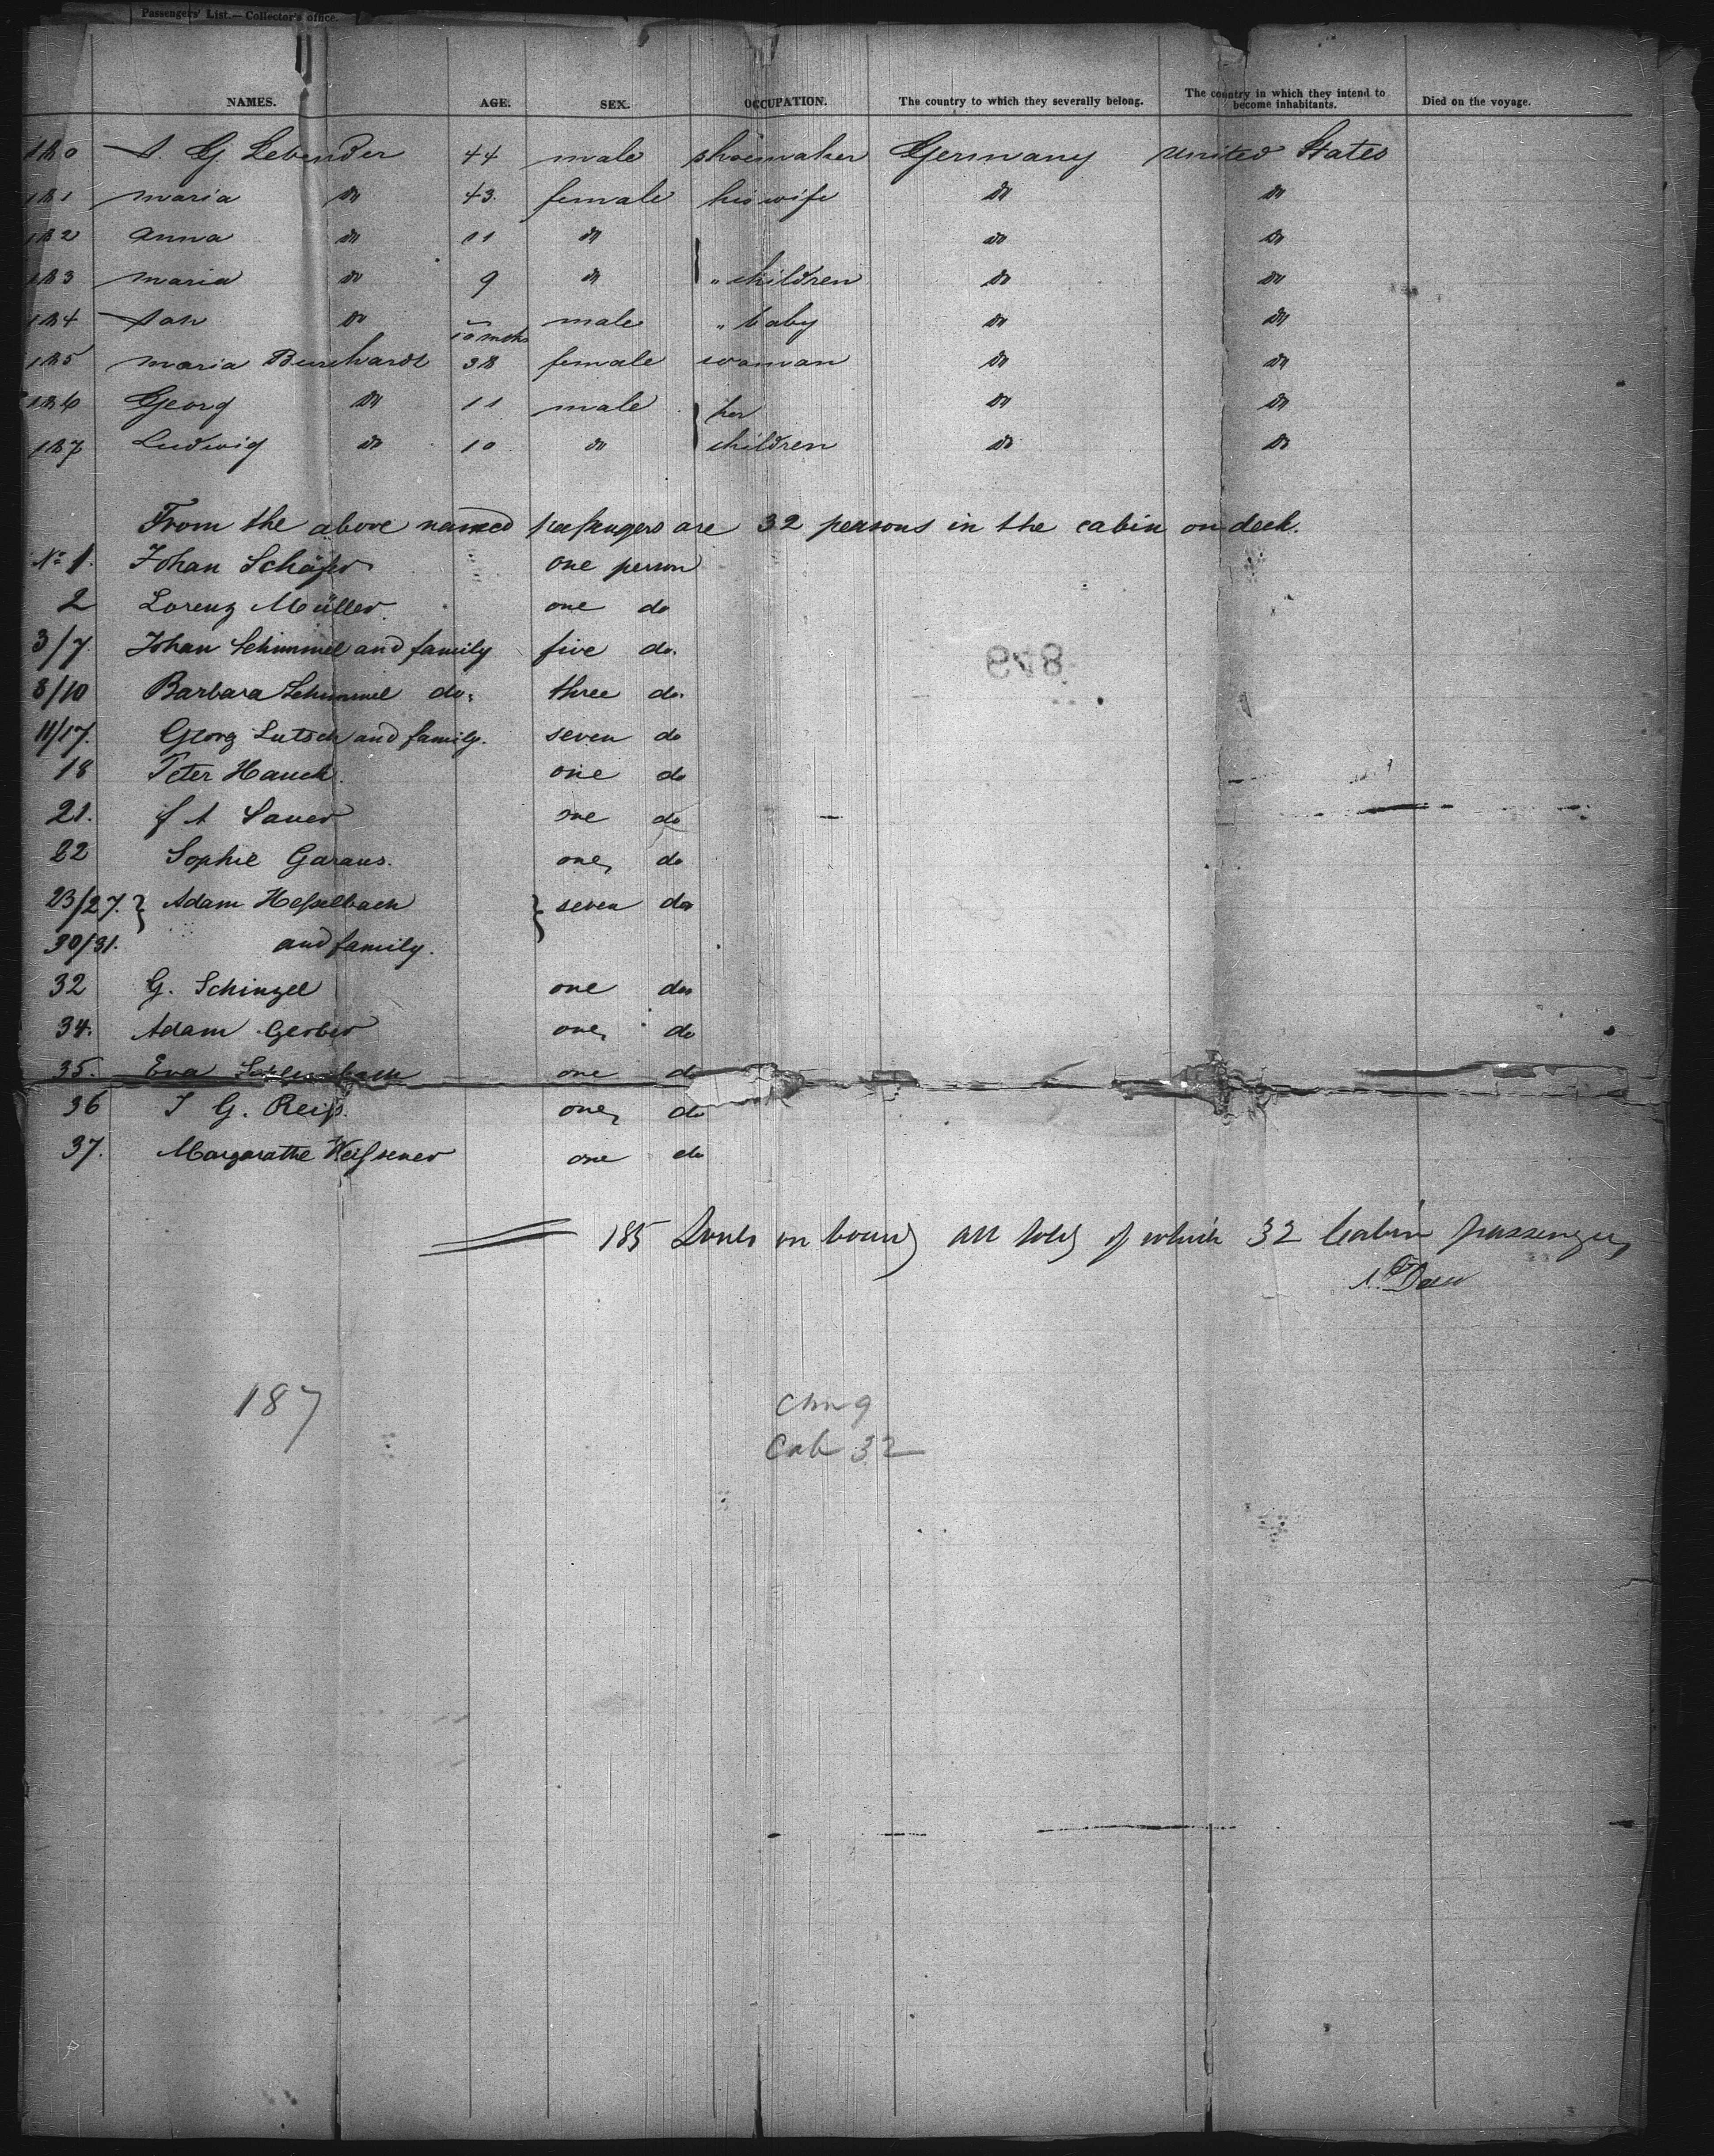 Passengers' List.—Collector's office.
NAMES. AGE. SEX. OCCUPATION. The country to which they severally belong. The country in which they intend to become inhabitants. Died on the voyage.
180 A. G Lebender 44 male shoemaker Germany United States
181 maria do 43. female his wife do do
182 anna do 11 do do do
183 maria do 9 do " children do do
184 do 10 mths male " baby do do
185 maria Burchardt 38 female woman do do
186 Georg do 11 male her do do
187 Ludwig do 10 do children do do
From the above named passengers are 32 persons in the cabin on deck.
No 1. Johan Schäfer one person
2 Lorenz Müller. one do
3/7. Johan Schimmel and family five do.
8/10 Barbara Schimmel do. three do.
11/17. Georg Lutsch and family. seven do
18 Peter Hauck. one do
21. Sauer one do
22 Sophie Garaus. one do
23/27. } Adam Hesselbach } seven do
30/31. and family.
32 G. Schinzel one do
34. Adam Gerber one do
35. Eva one do
36 J G. Reiß. one do
37. Margarathe Weissener one do
185 Souls on board all told of which 32 Cabin passengers
187
Chn 9
Cab 32